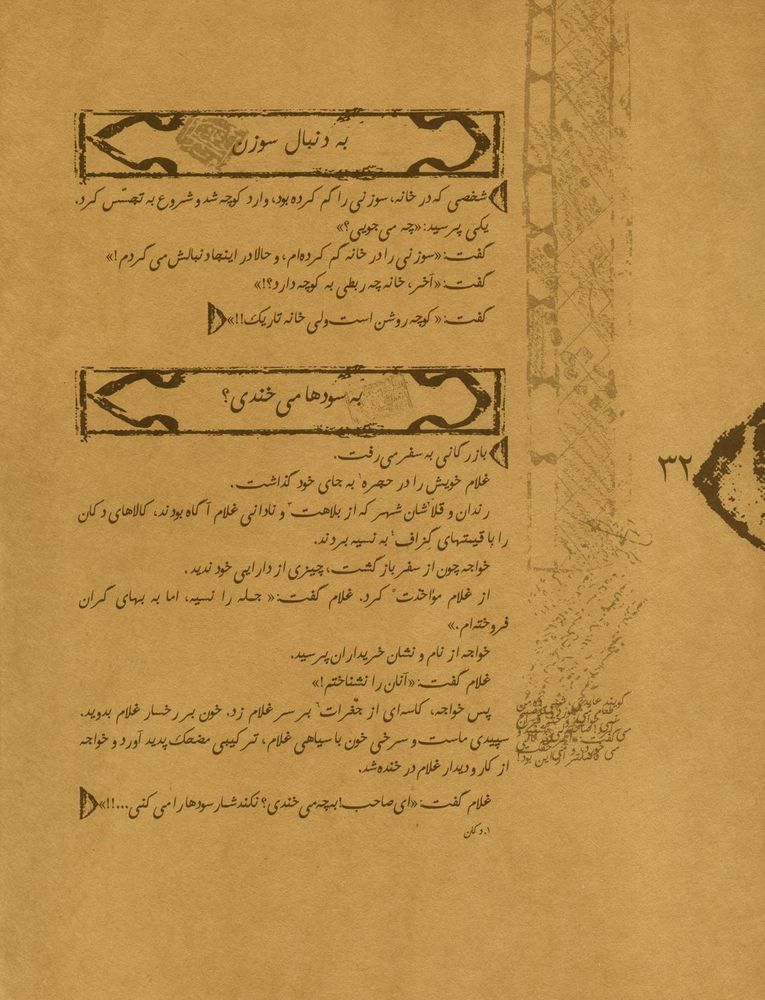 به دنبال سوزن
شخصی که در خانه، سوزنی را گم کرده بود، وارد کوچه شد و شروع به تجسّس کرد.
یکی پرسید: «چه می‌جویی؟»
گفت: «سوزنی را در خانه گم کرده‌ام، و حالا در اینجا دنبالش می‌گردم!»
گفت: «آخر، خانه چه ربطی به کوچه دارد؟!»
گفت: «کوچه روشن است ولی خانه تاریک!!»
به سودها می‌خندی؟
بازرگانی به سفر می‌رفت.
غلام خویش را در حجره۱ به جای خود گذاشت.
رندان و قلاّشان شهر که از بلاهت و نادانی غلام آگاه بودند، کالاهای دکان
را با قیمتهای گزاف به نسیه بردند.
خواجه چون از سفر باز گشت، چیزی از دارایی خود ندید.
از غلام مؤاخذت کرد. غلام گفت: «جمله را نسیه، اما به بهای گران
فروخته‌ام.»
خواجه از نام و نشان خریداران پرسید.
غلام گفت: «آنان را نشناختم!»
پس خواجه، کاسه‌ای از جغرات بر سر غلام زد. خون بر رخسار غلام بدوید.
سپیدی ماست و سرخی خون با سیاهی غلام، ترکیبی مضحک پدید آورد و خواجه
از کار و دیدار غلام در خنده شد.
غلام گفت: «ای صاحب! به چه می‌خندی؟ نکند شمار سودها را می‌کنی...!!»
۱. دکان
۳۲